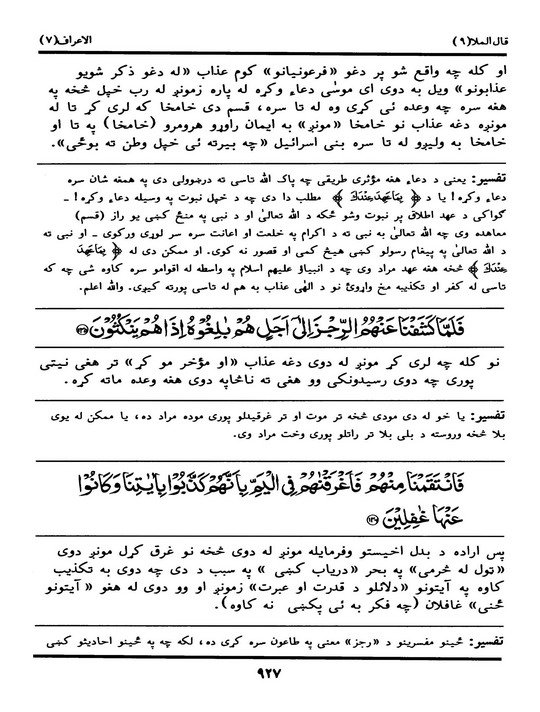 قال الملا(٩)
الاعراف(٧)
او كله چه واقع شو پر دغو «فرعونيانو» كوم عذاب «له دغو ذكر شويو
عذابونو» ويل به دوى اى موسٰى دعاء وكړه له پاره زمونږ له رب خپل څخه په
هغه سره چه وعده ئى كړى وه له تا سره، قسم دى خامخا كه لرى كړ تا له
مونږه دغه عذاب نو خامخا «مونږ» به ايمان راوړو هرومرو (خامخا) په تا او
خامخا به وليږو له تا سره بنى اسرائيل «چه بيرته ئى خپل وطن ته بوځى».
تفسير: يعنى د دعاء هغه مؤثرى طريقى چه پاک الله تاسى ته درښوولى دى په همغه شان سره
دعاء وكړه! يا د ﴿ بِمَا عَهِدَ عِنْدَكَ ﴾ مطلب دا دى چه د خپل نبوت په وسيله دعاء وكړه! ـ
گواكى د عهد اطلاق پر نبوت وشو ځكه د الله تعالىٰ او د نبى په منځ كښى يو راز (قسم)
معاهده وى چه الله تعالىٰ به نبى ته د اكرام په خلعت او اعانت سره سر لوړى وركوى ـ او نبى ته
د الله تعالىٰ په پيغام رسولو كښى هيڅ كمى او قصور نه كوى. او ممكن دى له ﴿ بِمَا عَهِدَ
عِنْدَكَ ﴾ څخه هغه عهد مراد وى چه د انبياؤ عليهم اسلام په واسطه له اقوامو سره كاوه شى چه كه
تاسى له كفر او تكذيبه مخ واړوئ نو د الهى عذاب به هم له تاسى پورته كيږى. والله اعلم.
فَلَمَّا كَشَفْنَا عَنْهُمُ الرِّجْزَ اِلٰٓى اَجَلٍ هُمْ بٰلِغُوْهُ اِذَا هُمْ يَنْكُثُوْنَ ﴿۱۳۵﴾
نو كله چه لرى كړ مونږ له دوى دغه عذاب «او مؤخر مو كړ» تر هغى نيتى
پورى چه دوى رسيدونكى وو هغى ته ناڅاپه دوى هغه وعده ماته كړه.
تفسير: يا خو له دى مودى څخه تر موت او تر غرقيدلو پورى موده مراد ده، يا ممكن له يوى
بلا څخه وروسته د بلى بلا تر راتلو پورى وخت مراد وى.
فَانْتَقَمْنَا مِنْهُمْ فَاَغْرَقْنٰهُمْ فِى الْيَمِّ بِاَنَّهُمْ كَذَّبُوْا بِاٰيٰتِنَا وَكَانُوْا
عَنْهَا غٰفِلِيْنَ ﴿۱۳۶﴾
پس اراده د بدل اخيستو وفرمايله مونږ له دوى څخه نو غرق كړل مونږ دوى
«ټول له څرمى» په بحر «درياب كښى» په سبب د دى چه دوى به تكذيب
كاوه په آيتونو «دلائلو د قدرت او عبرت» زمونږ او وو دوى له هغو «آيتونو
څنى» غافلان (چه فكر به ئى پكښى نه كاوه).
تفسير: ځينو مفسرينو د «رجز» معنى په طاعون سره كړى ده، لكه چه په ځينو احاديثو كښى
٩٢٧